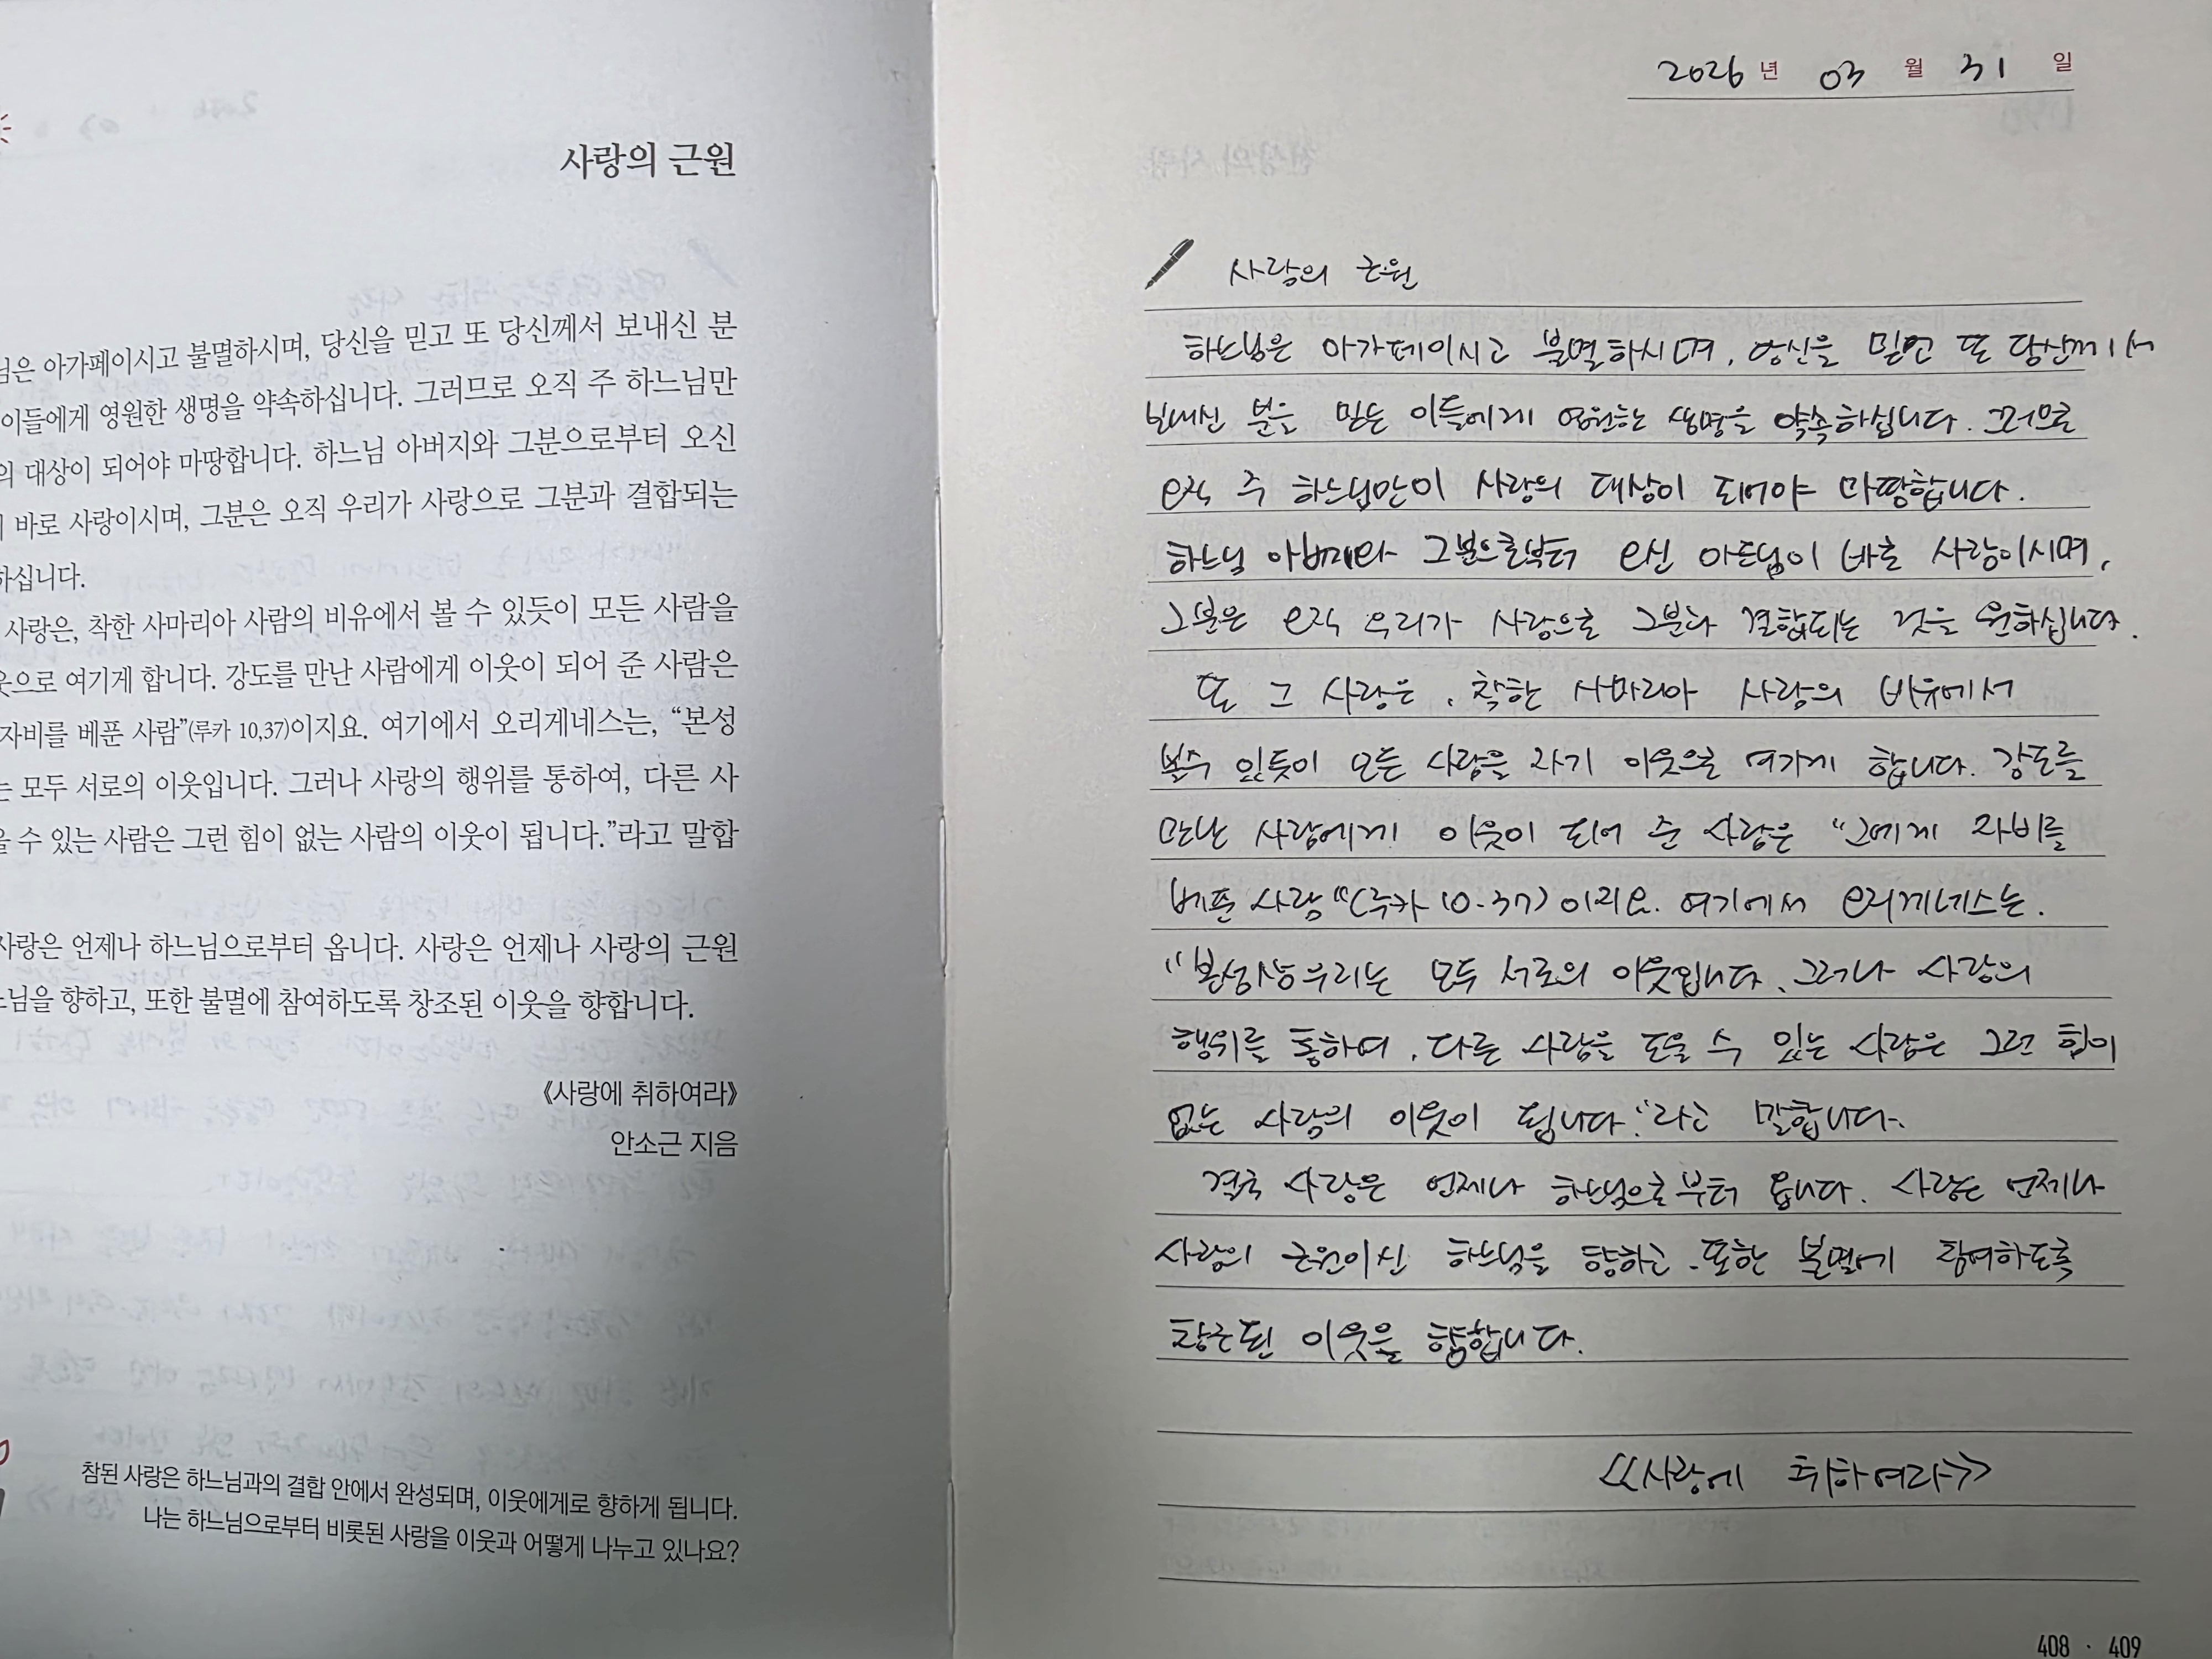 사랑의 근원
님은 아가페이시고 불멸하시며, 당신을 믿고 또 당신께서 보내신 분
이들에게 영원한 생명을 약속하십니다. 그러므로 오직 주 하느님만
의 대상이 되어야 마땅합니다. 하느님 아버지와 그분으로부터 오신
바로 사랑이시며, 그분은 오직 우리가 사랑으로 그분과 결합되는
하십니다.
사랑은, 착한 사마리아 사람의 비유에서 볼 수 있듯이 모든 사람을
웃으로 여기게 합니다. 강도를 만난 사람에게 이웃이 되어 준 사람은
자비를 베푼 사람”(루카 10,37)이지요. 여기에서 오리게네스는, “본성
는 모두 서로의 이웃입니다. 그러나 사랑의 행위를 통하여, 다른 사
울 수 있는 사람은 그런 힘이 없는 사람의 이웃이 됩니다.”라고 말합
사랑은 언제나 하느님으로부터 옵니다. 사랑은 언제나 사랑의 근원
느님을 향하고, 또한 불멸에 참여하도록 창조된 이웃을 향합니다.
《사랑에 취하여라》
안소근 지음
참된 사랑은 하느님과의 결합 안에서 완성되며, 이웃에게로 향하게 됩니다.
나는 하느님으로부터 비롯된 사랑을 이웃과 어떻게 나누고 있나요?
2026년 03월 31일
사랑의 근원
하느님은 아가페이시고 불멸하시며, 당신을 믿고 또 당신께서
보내신 분을 믿는 이들에게 영원한 생명을 약속하십니다. 그러므로
오직 주 하느님만이 사랑의 대상이 되어야 마땅합니다.
하느님 아버지와 그분으로부터 오신 아드님이 바로 사랑이시며,
그분은 오직 우리가 사랑으로 그분과 결합되는 것을 원하십니다.
또 그 사랑은, 착한 사마리아 사람의 비유에서
볼수 있듯이 모든 사람을 자기 이웃으로 여기게 합니다. 강도를
만난 사람에게 이웃이 되어 준 사람은 “그에게 자비를
베푼 사람“(루카 10.37)이지요. 여기에서 오리게네스는,
“본성상 우리는 모두 서로의 이웃입니다. 그러나 사랑의
행위를 통하여, 다른 사람을 도울 수 있는 사람은 그런 힘이
없는 사람의 이웃이 됩니다.“라고 말합니다.
결국 사랑은 언제나 하느님으로부터 옵니다. 사랑은 언제나
사랑의 근원이신 하느님을 향하고, 또한 불멸에 참여하도록
창조된 이웃을 향합니다.
<<사랑에 취하여라>>
408 · 409